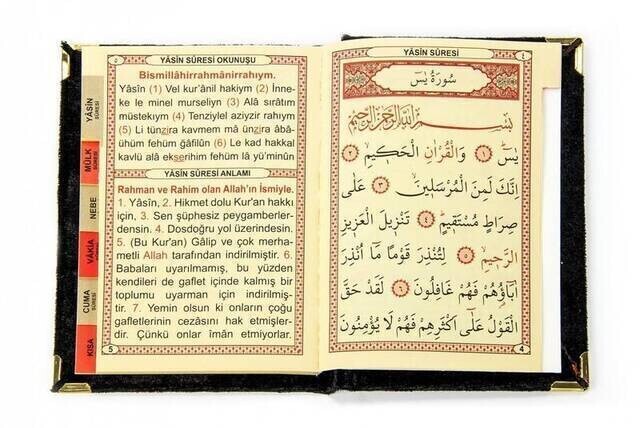 YÂSİN SÛRESİ OKUNUŞU
Bismillâhirrahmânirrahıym.
Yâsîn (1) Vel kur'ânil hakiym (2) İnne-
ke le minel murseliyn (3) Alâ sırâtım
müstekıym (4) Tenziylel aziyzir rahıym
(5) Li tünzira kavmem mâ ünzira âbâ-
ühüm fehüm ğâfilûn (6) Le kad hakkal
kavlü alâ ekserihim fehüm lâ yü'minûn
YÂSİN SÛRESİ ANLAMI
Rahman ve Rahim olan Allah'ın İsmiyle.
1. Yâsîn, 2. Hikmet dolu Kur'an hakkı
için, 3. Sen şüphesiz peygamberler-
densin. 4. Dosdoğru yol üzerindesin.
5. (Bu Kur'an) Gâlip ve çok merha-
metli Allah tarafından indirilmiştir. 6.
Babaları uyarılmamış, bu yüzden
kendileri de gaflet içinde kalmış bir
toplumu uyarman için indirilmiş-
tir. 7. Yemin olsun ki onların çoğu
gafletlerinin cezasını hak etmişler-
dir. Çünkü onlar îmân etmiyorlar.
5
YÂSİN
SÛRESİ
MÜLK
SÛRESİ
NEBE
VÂKIA
CUMA
SÛRESİ
KISA
YÂSİN SÛRESİ
٤
سُورَةُ يٰسٓ
بِسْمِ اللّٰهِ الرَّحْمٰنِ الرَّحِيمِ
يٰسٓ ﴿١﴾ وَالْقُرْاٰنِ الْحَكِيمِ ﴿٢﴾
اِنَّكَ لَمِنَ الْمُرْسَلِينَ ﴿٣﴾ عَلٰى
صِرَاطٍ مُسْتَقِيمٍ ﴿٤﴾ تَنْزِيلَ الْعَزِيزِ
الرَّحِيمِ ﴿٥﴾ لِتُنْذِرَ قَوْمًا مَٓا اُنْذِرَ
اٰبَٓاؤُهُمْ فَهُمْ غَافِلُونَ ﴿٦﴾ لَقَدْ حَقَّ
الْقَوْلُ عَلٰٓى اَكْثَرِهِمْ فَهُمْ لَا يُؤْمِنُونَ
4